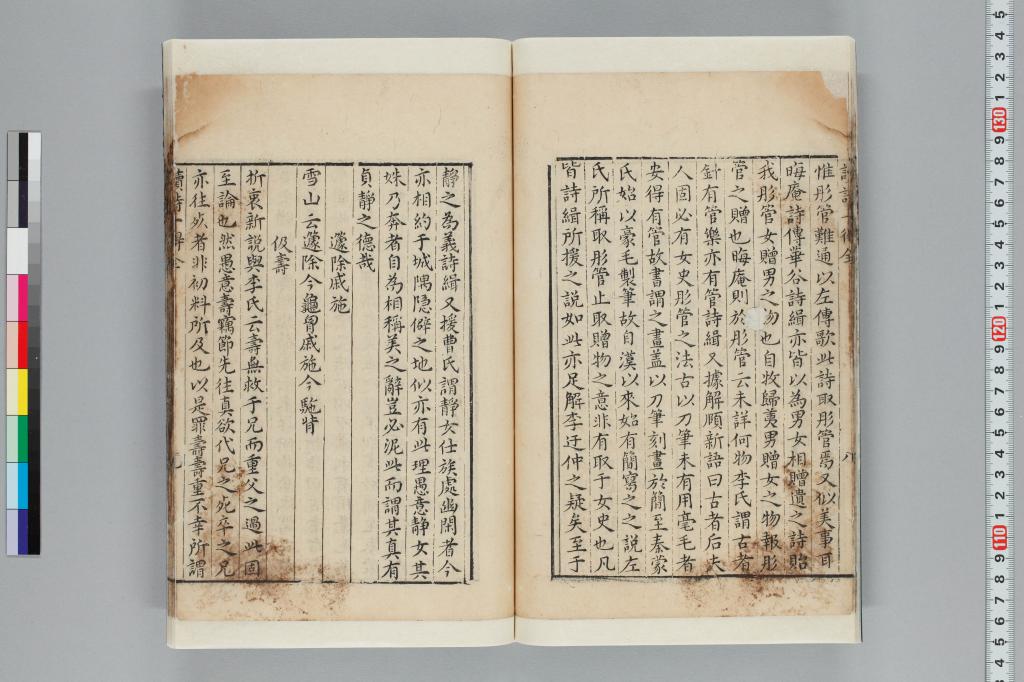 惟彤管難通以左傳歌此詩取彤管焉又似美事耳
晦庵詩傳華谷詩緝亦皆以為男女相贈遺之詩貽
我彤管女贈男之物也自牧歸荑男贈女之物報彤
管之贈也晦庵則於彤管云未詳何物李氏謂古者
針有管樂亦有管詩緝又據解頤新語曰古者后夫
人固必有女史彤管之法古以刀筆未有用毫毛者
安得有管故書謂之畫蓋以刀筆刻畫於簡至秦蒙
氏始以豪毛製筆故自漢以來始有簡寫之之說左
氏所稱取彤管止取贈物之意非有取于女史也凡
皆詩緝所援之說如此亦足解李迂仲之疑矣至于
靜之為義詩緝又援曹氏謂靜女仕族處幽閑者今
亦相約于城隅隱僻之地似亦有此理愚意靜女其
姝乃奔者自為相稱美之辭豈必泥此而謂其真有
貞靜之德哉
籧除戚施
雪山云籧除今龜胷戚施今駞背
伋壽
折衷新說與李氏云壽無救于兄而重父之過此固
至論也然愚意壽竊節先往真欲代兄之死卒之兄
亦往死者非初料所及也以是罪壽壽重不幸所謂